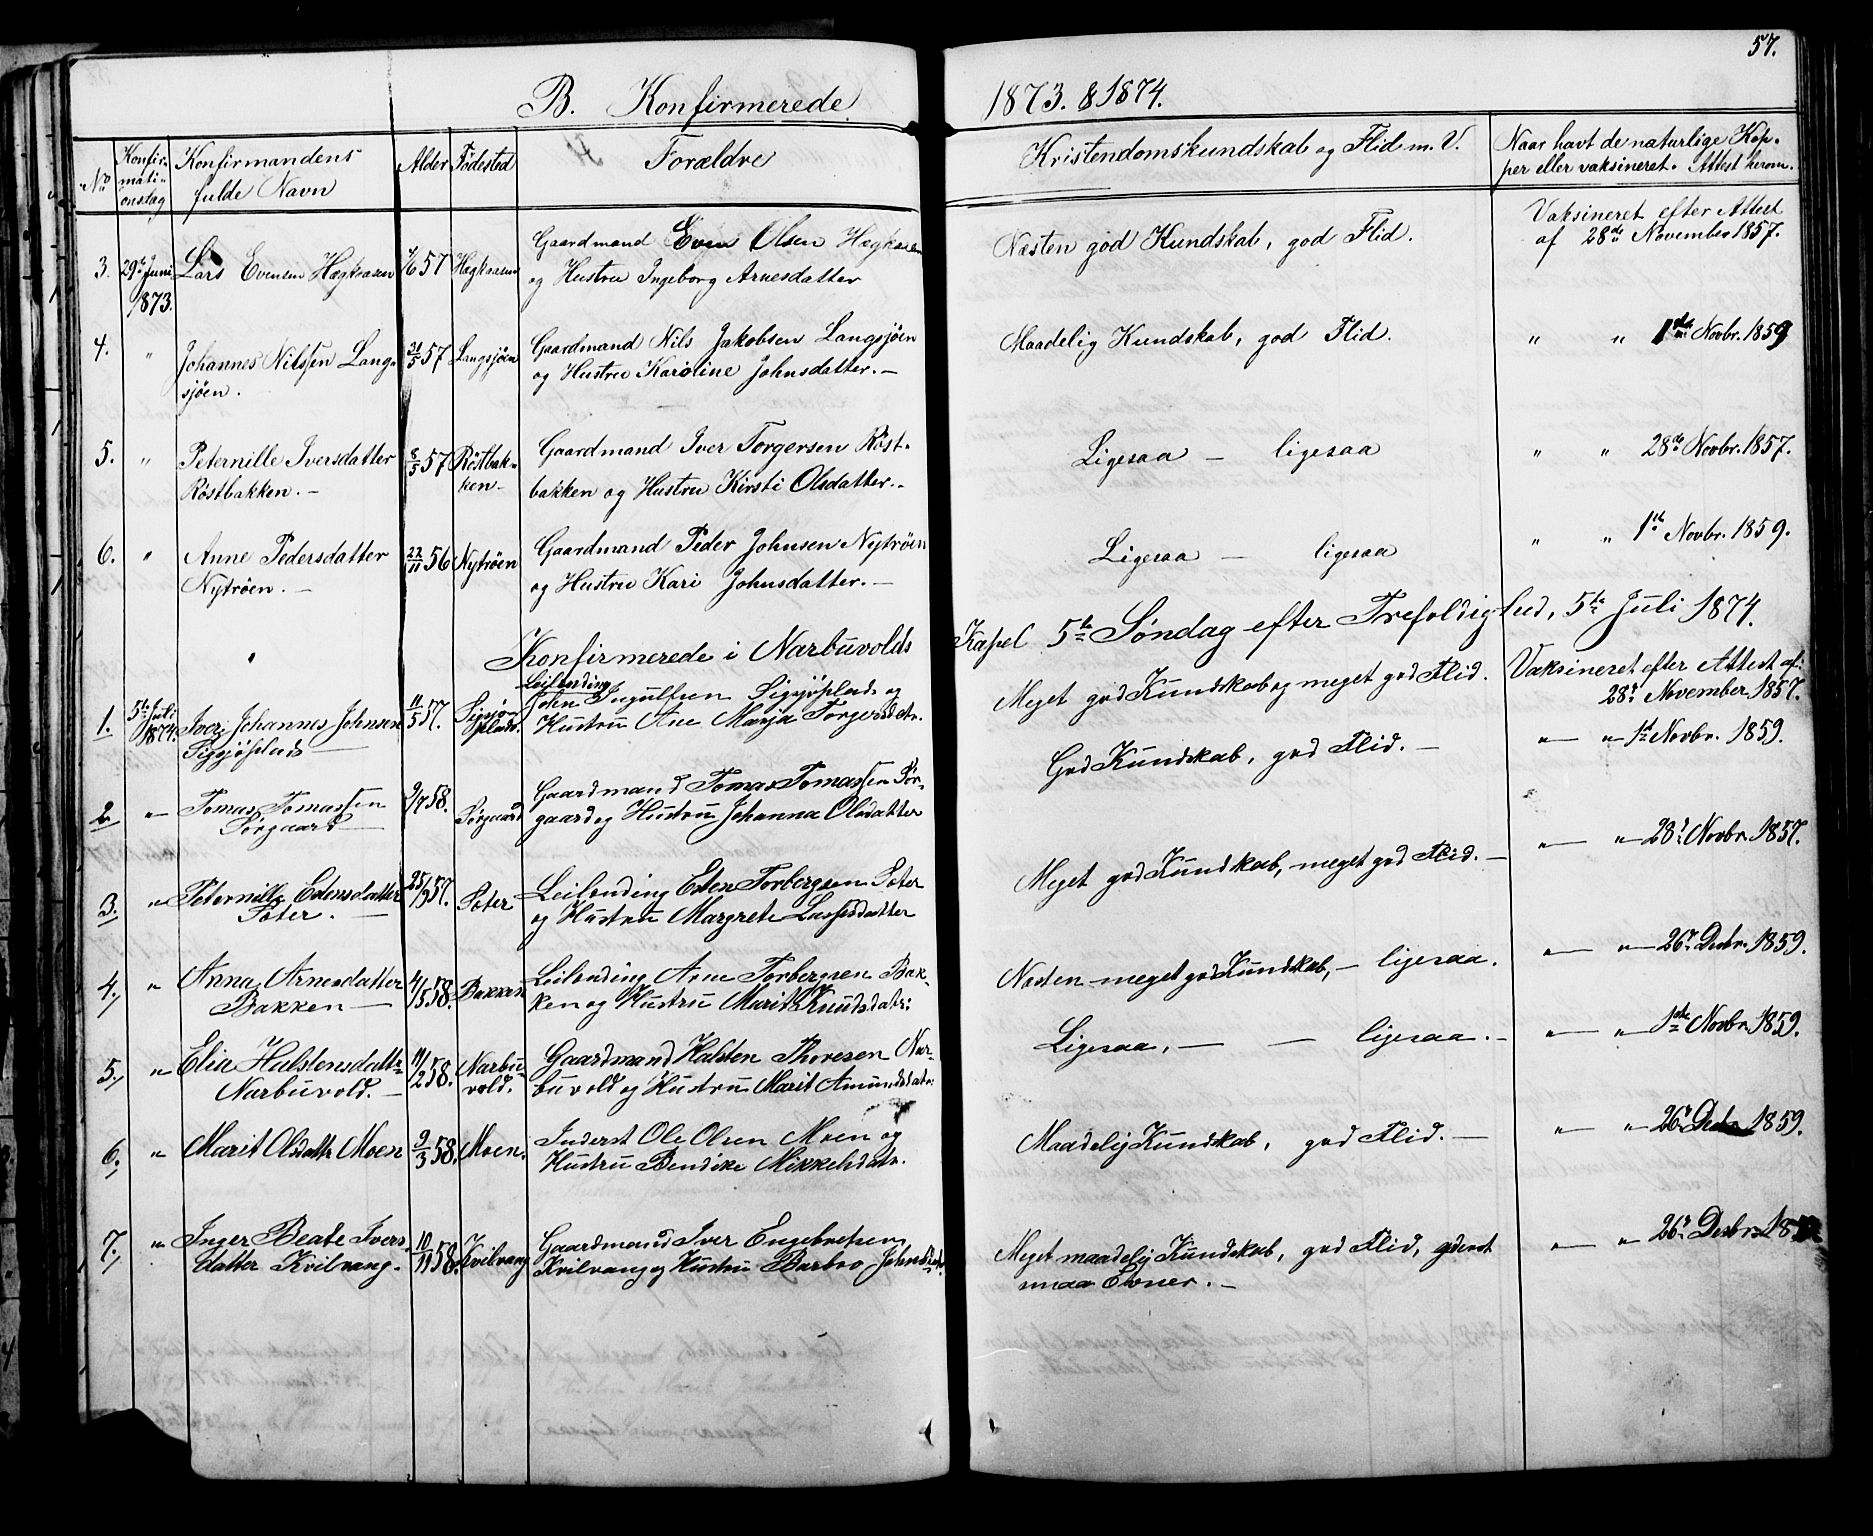 57.
B. Konfirmerede 1873. & 1874.
No Konfirmationsdag Konfirmandens fulde Navn Alder Fødested Forældre Kristendomskundskab og Flid m. V. Naar havt de naturlige Kopper eller vaksineret. Attest herom.
3. 29de Juni 1873. Lars Evensen Hægkasen 57 Hægkasen
Gaardmand Even Olsen Hægkasen
og Hustru Ingeborg Arnesdatter
Næsten god Kundskab, god Flid.
Vaksineret efter Attest
af 28de November 1857.
4. " Johannes Nilssen Lang-
sjöen.
31/5 57 Langsjöen
Gaardmand Nils Jakobsen Langsjöen
og Hustru Karoline Johnsdatter. —
Maadelig Kundskab, god Flid.
" " 1ste Novbr. 1859
5. " Peternille Iversdatter
Röstbakken. —
8/5 57 Röstbak-
ken —
Gaardmand Iver Torgersen Röst-
bakken og Hustru Kirsti Olsdatter. —
Ligesaa — ligesaa
" " 28de Novbr. 1857.
6. " Anne Pedersdatter
Nytröen. —
22/11 56 Nytröen
Gaardmand Peder Johnsen Nytröen
og Hustru Kari Johnsdatter. —
Ligesaa — ligesaa
" " 1ste Novbr. 1859.
Konfirmerede i Narbuvolds Kapel 5te Søndag efter Trefoldighed, 5te Juli 1874.
1. 5te Juli 1874. Iver Johannes Johnsen
Sigsjöplads —
11/5 57. Sigsjöplads.
Leilending
John Ingultsen Sigsjöplads og
Hustru Ane Marja Torgersdtr.
Meget god Kundskab og meget god Flid.
Vaksineret efter Attest af:
28de November 1857.
2. " Tomas Tomassen
Sörgaard —
9/7 58. Sörgaard
Gaardmand Tomas Tomassen Sör-
gaard og Hustru Johanna Olsdatter
God Kundskab, god Flid. —
" " 1ste Novbr. 1859.
3. " Peternille Estensdatter
Sæter. —
57. Sæter
Leilending Esten Torbergsen Sæter
og Hustru Margrete Lassesdatter
Meget god Kundskab, meget god Flid. —
" " 28de Novbr. 1857.
4. " Anna Arnesdatter
Bakken —
4/5 58. Bakken
Leilending Arne Torbergsen Bak-
ken og Hustru Marit Knudsdatr:
Næsten meget god Kundskab, — ligesaa.
" " 26de Decbr. 1859.
5. " Elia Halstensdattr
Narbuvold. —
11/2 58. Narbu-
vold.
Gaardmand Halsten Thoresen Nar-
buvold og Hustru Marit Amundsdatr:
Ligesaa, — — ligesaa. —
" " 1ste Novbr. 1859.
6. " Marit Olsdattr Moen
9/3 58. Moen.
Inderst Ole Olsen Moen og
Hustru Bendike Mikkelsdatr.
Maadelig Kundskab, god Flid. —
" " 26de Decbr 1859.
7. " Inger Beate Ivers-
datter Kvilvang.
10/11 58. Kvilvang
Gaardmand Iver Engebretsen
Kvilvang og Hustru Barbro Johnsdatr.
Meget maadelig Kundskab, god Flid, yderst
smaa Evner. —
" " 26de Decbr.